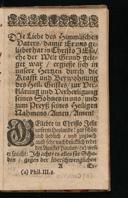 Die Liebe des Himmlischen
Vaters / damit Er uns ge-
liebet hat in Christo JEsu /
ehe der Welt Grund gele-
get war / ergiesse sich in
unsere Hertzen durch die
Krafft und
des Heil. Geistes / zur Ver-
klärung und Verherrlichung
seines Sohnes in uns / und
zum Preyß seines Heiligen
Nahmens / Amen / Amen!
Geliebte in Christo JEsu
unserm Heylande! gar
und
sehr nachdrücklich redet der
Apostel Paulus /
er spricht: Ich achte es alles für Scha-
den / gegen der überschwenglichen
A
(a) Phil. III. 8.